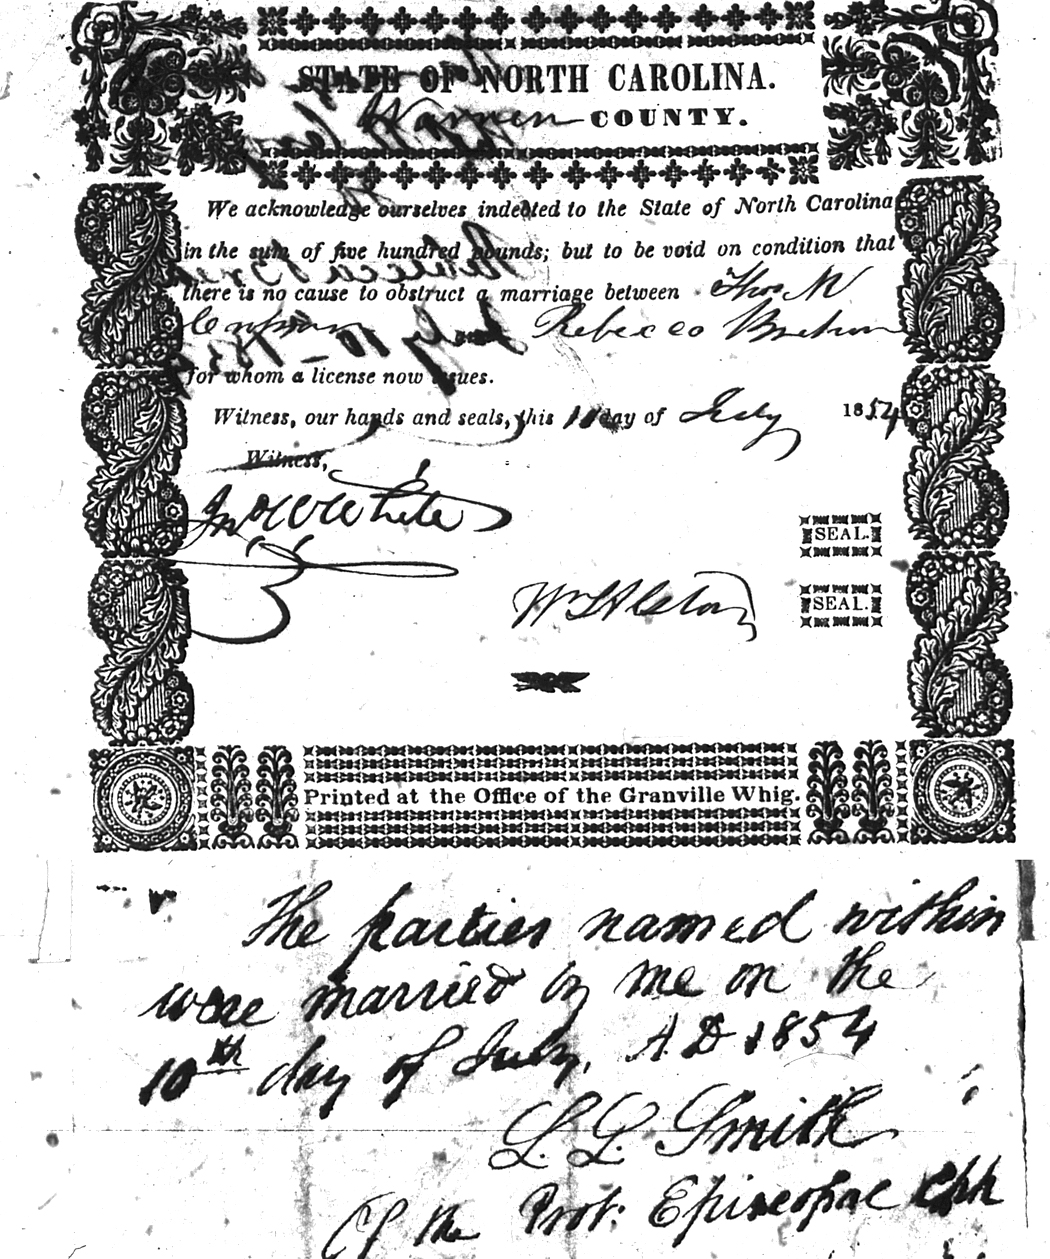 STATE OF NORTH CAROLINA.
Warren COUNTY.
We acknowledge ourselves indebted to the State of North Carolina
in the sum of five hundred pounds; but to be void on condition that
there is no cause to obstruct a marriage between Thos M
Rebecca
for whom a license now issues.
Witness, our hands and seals, this 10 day of July 1854
Witness,
Jno W White
SEAL.
Wm Alston
SEAL.
Printed at the Office of the Granville Whig.
The parties named within
were married by me on the
10th day of July, A.D 1854
L. L. Smith
Of the Prot. Episcopal Chh